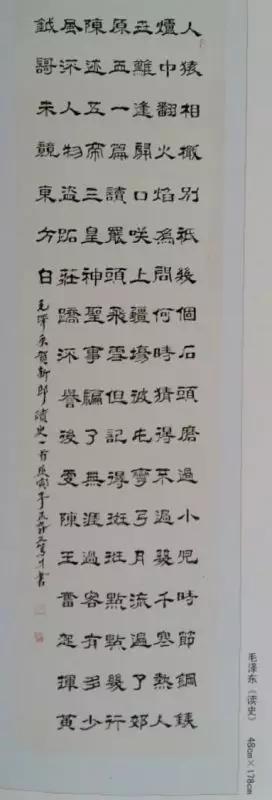 人猿相揖别祇幾個石頭磨過小兒時節銅鐵
爐中翻火焰為問何時猜得不過幾千寒熱人
世難逢開口咲上疆場彼此彎弓月流遍了郊
原血一篇讀罷頭飛雪但記得斑斑點點幾行
陳迹五帝三皇神聖事騙了無涯過客有多少
風流人物盜跖莊蹻流譽後更陳王奮起揮黃
鉞謌未競東方白
毛澤東賀新郎讀史一首
毛泽东《读史》 48cm×178cm